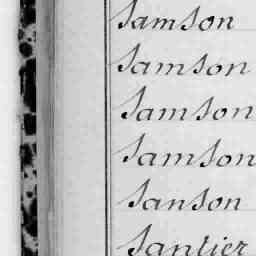 Samson
Samson
Samson
Samson
Sanson
Santier